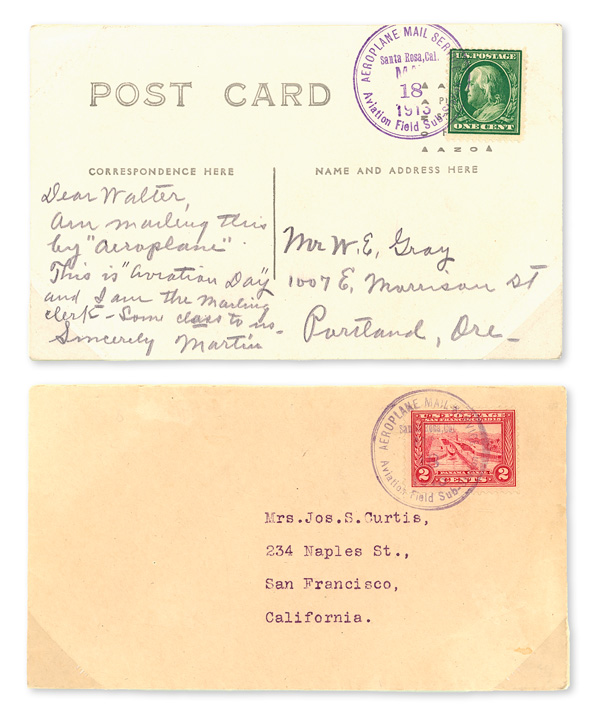 POST CARD
AEROPLANE MAIL SER
Santa Rosa, Cal.
18
1913
Aviation Field Sub
U.S. POSTAGE
ONE CENT
CORRESPONDENCE HERE
NAME AND ADDRESS HERE
Dear Walter,
Am mailing this
by "Aeroplane".
This is "Aviation Day"
and I am the mailing
clerk - Some class to us -
Sincerely Martin
Mr W. E. Gray
1007 E. Morrison St
Portland, Ore -
AEROPLANE MAIL
Aviation Field Sub
U.S. POSTAGE
PANAMA CANAL
2 CENTS 2
Mrs.Jos.S.Curtis,
234 Naples St.,
San Francisco,
California.